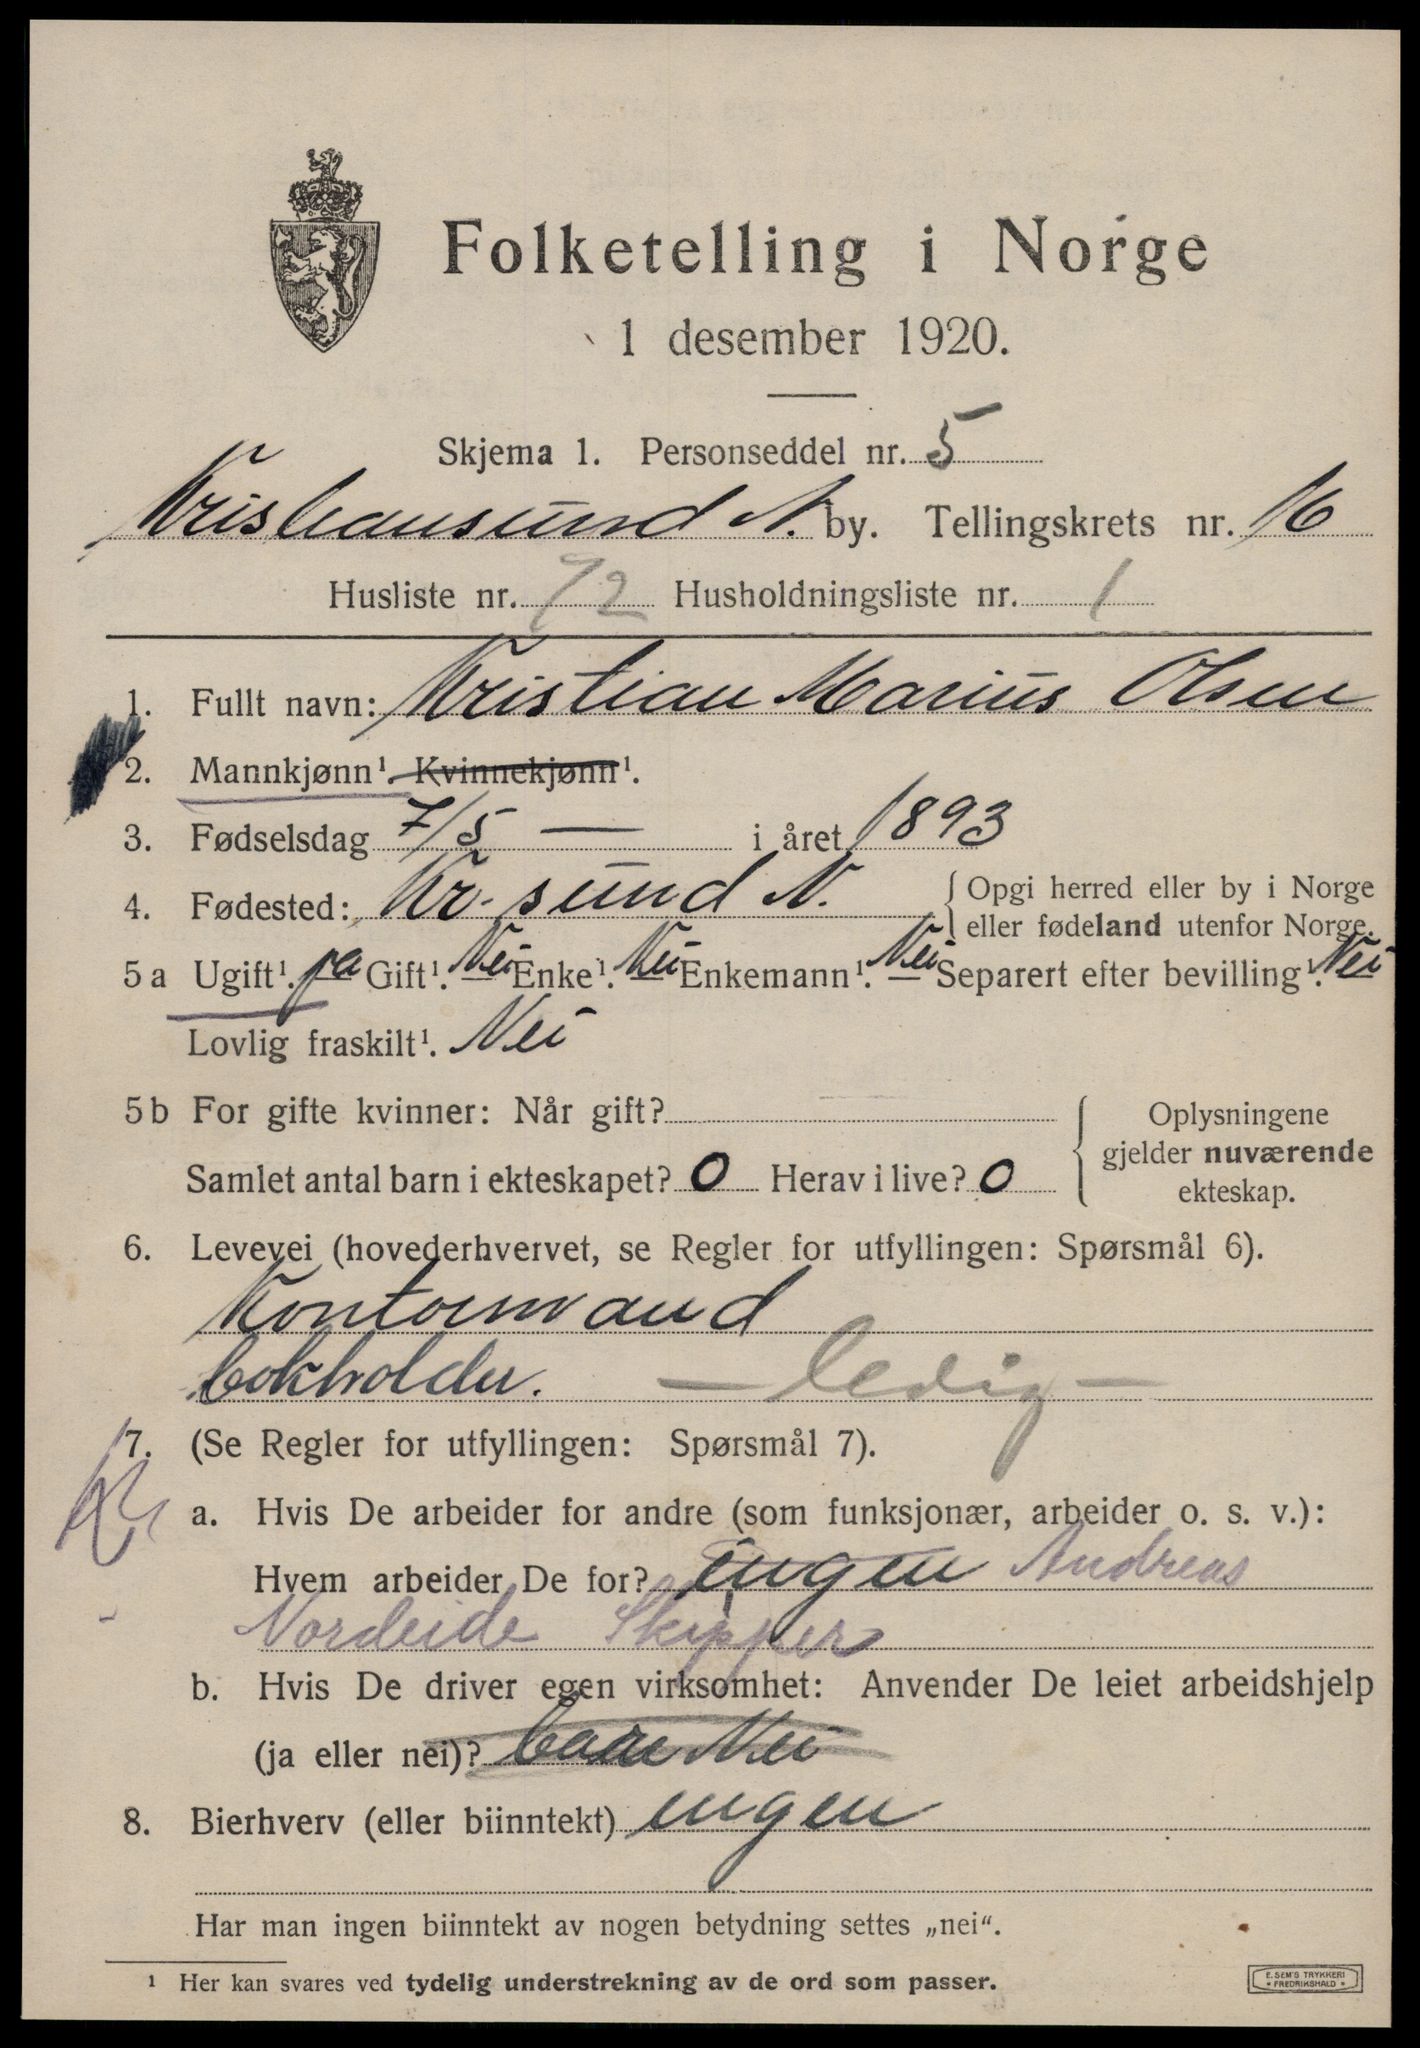 Folketelling i Norge
1 desember 1920.
Skjema 1. Personseddel nr. 5
Kristiansund N. by. Tellingskrets nr. 16
Husliste nr. 72 Husholdningsliste nr. 1
1. Fullt navn: Kristian Marius Olsen
2. Mannkjønn¹. Kvinnekjønn¹.
3. Fødselsdag 7/5 — i året 1893
4. Fødested: Kr. sund N. { Opgi herred eller by i Norge
eller fødeland utenfor Norge.
5 a Ugift¹. ja Gift¹. Nei Enke¹. Nei Enkemann¹. Nei Separert efter bevilling¹. Nei
Lovlig fraskilt¹. Nei
5 b For gifte kvinner: Når gift?
Samlet antal barn i ekteskapet? 0 Herav i live? 0
Oplysningene
gjelder nuværende
ekteskap.
6. Levevei (hovederhvervet, se Regler for utfyllingen: Spørsmål 6).
Kontormand
bokholder. — ledig —
7. (Se Regler for utfyllingen: Spørsmål 7).
a. Hvis De arbeider for andre (som funksjonær, arbeider o. s. v.):
Hvem arbeider De for? ingen Andreas
Nordeide Skipper
b. Hvis De driver egen virksomhet: Anvender De leiet arbeidshjelp
(ja eller nei)? bare Nei
8. Bierhverv (eller biinntekt) ingen
Har man ingen biinntekt av nogen betydning settes „nei“.
¹ Her kan svares ved tydelig understrekning av de ord som passer.
E. SEM'S TRYKKERI
* FREDRIKSHALD *